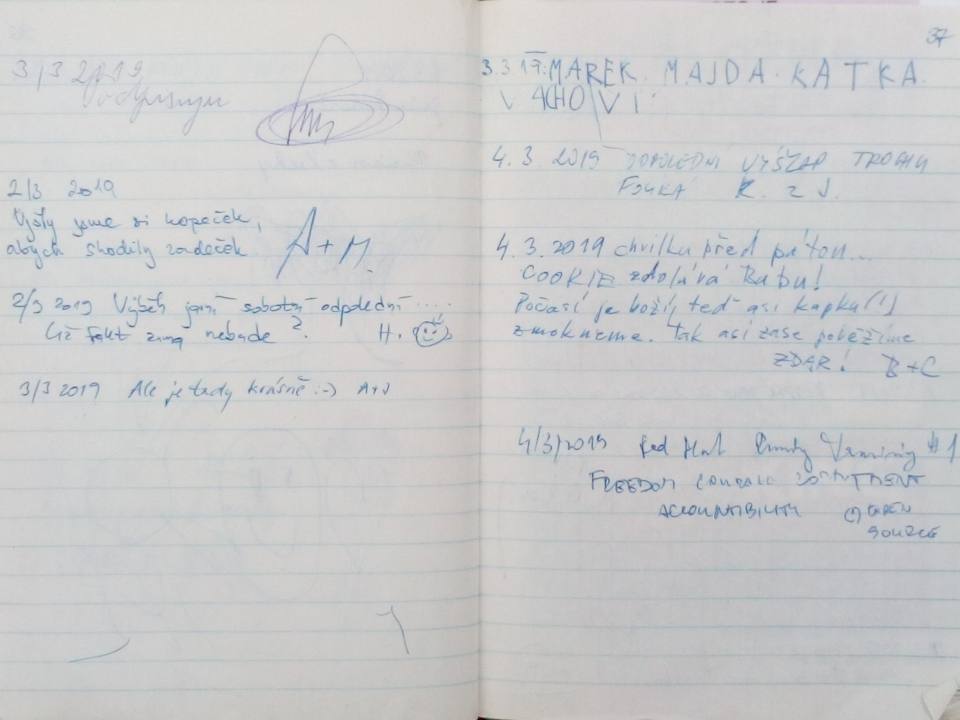 3/3 2019
2/3 2019
Vyšly jsme si kopeček,
abych shodily zadeček A+M.
2/3 2019 Výběh jarní sobotní odpolední ....
Už fakt zima nebude? H.
3/3 2019 Ale je tady krásně :-) A+J
37
3.3.19: MAREK. MAJDA. KATKA.
VACHOVI.
4. 3. 2019 DOPOLEDNÍ VÝŠLAP TROCHU
FOUKÁ K. z J.
4. 3. 2019 chvilku před pátou...
COOKIE zdolává Babu!
Počasí je boží, teď asi kapku (!)
zmokneme. Tak asi zase poběžíme
ZDAR! B+C
4/3/2019 Red Hat #1
FREEDOM COURAGE COMMITMENT
ACCOUNTABILITY OPEN
SOURCE